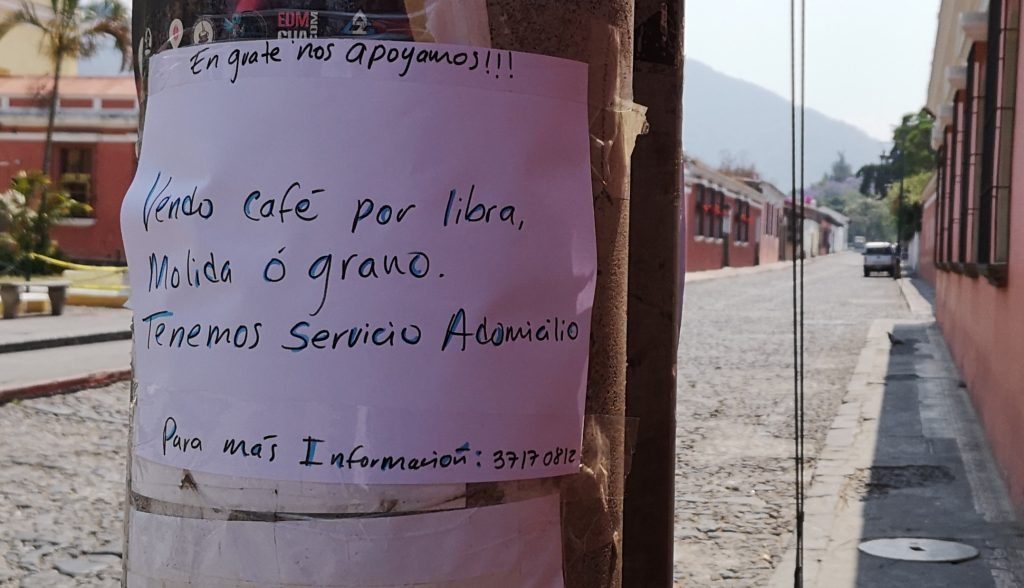 EDM
En guate nos apoyamos!!!
Vendo café por libra,
Molida ó grano.
Tenemos Servicio Adomicilio
Para más Información: 37170812